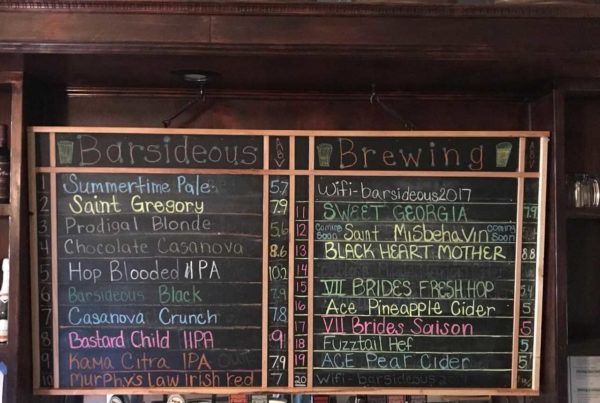 Barsideous
ABV
1 Summertime Pale 5.7
2 Saint Gregory 7.9
3 Prodigal Blonde 5.6
4 Chocolate Casanova 8.6
5 Hop Blooded IIPA 10.2
6 Barsideous Black 7.9
7 Casanova Crunch 7.8
8 Bastard Child IIPA 9
9 Kama Citra IPA 7.9
10 Murphys Law Irish Red 7
Brewing
Wifi-barsideous2017
11 SWEET GEORGIA 7.9
12 Coming Soon Saint MisBehaVin Coming Soon
13 BLACK HEART MOTHER 8.8
14
15 VII BRIDES FRESH HOP
16 Ace Pineapple Cider 5
17 VII Brides Saison 5
18 Fuzztail Hef 5
19 ACE Pear Cider 5
20 Wifi-barsideous2